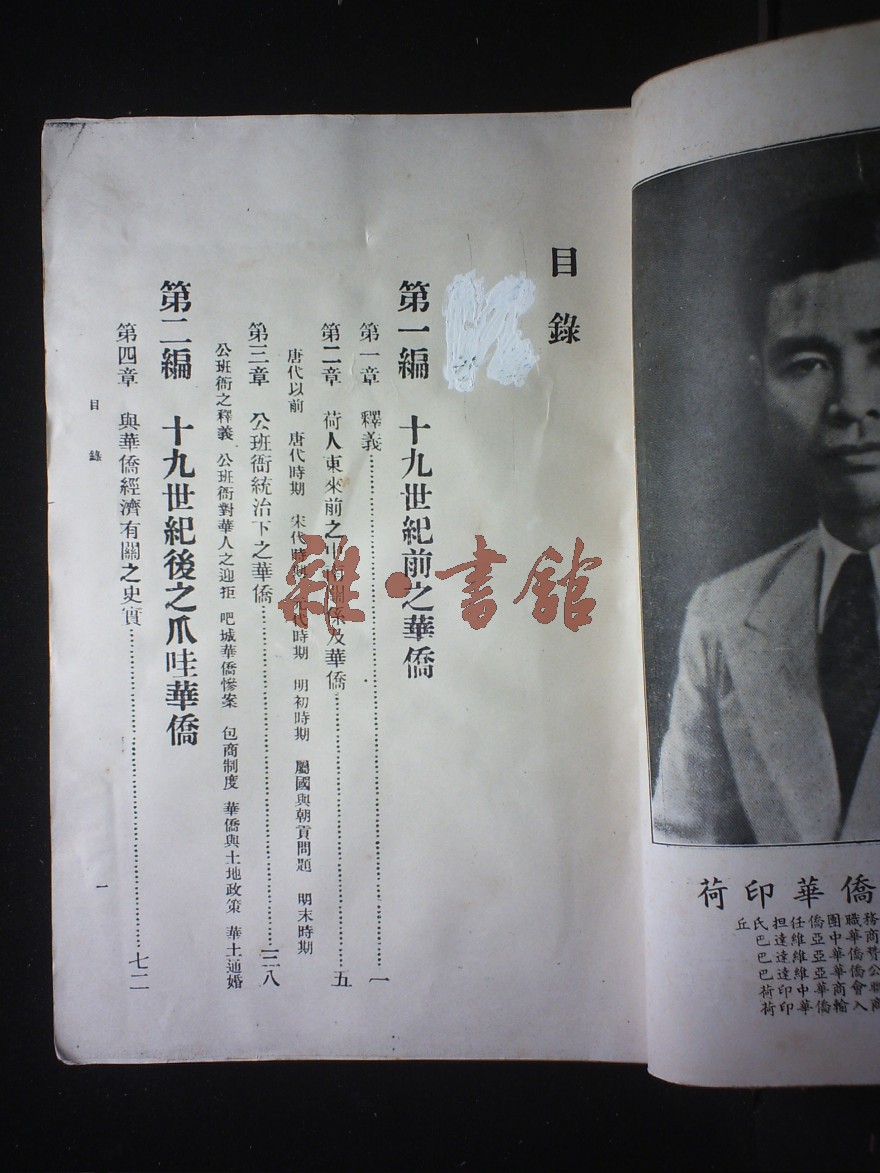 目錄
第一編 十九世紀前之華僑
第一章 釋義 一
第二章 荷人東來前之 關係及華僑 五
唐代以前 唐代時期 宋代時期 元代時期 明初時期 屬國與朝貢問題 明末時期
第三章 公班衙統治下之華僑 三八
公班衙之釋義 公班衙對華人之迎拒 吧城華僑慘案 包商制度 華僑與土地政策 華土通婚
第二編 十九世紀後之爪哇華僑
第四章 與華僑經濟有關之史實 七二
目錄
一
荷印華僑
丘氏担任僑團職務
巴達維亞中華商
巴達維亞華僑
巴達維亞華僑公
荷印中華商會聯
荷印華僑輸入商
雜·書館